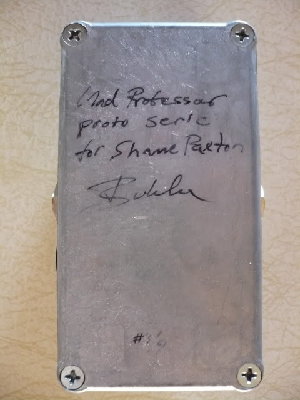 Mad Professor
proto serie
for Shane Paxton